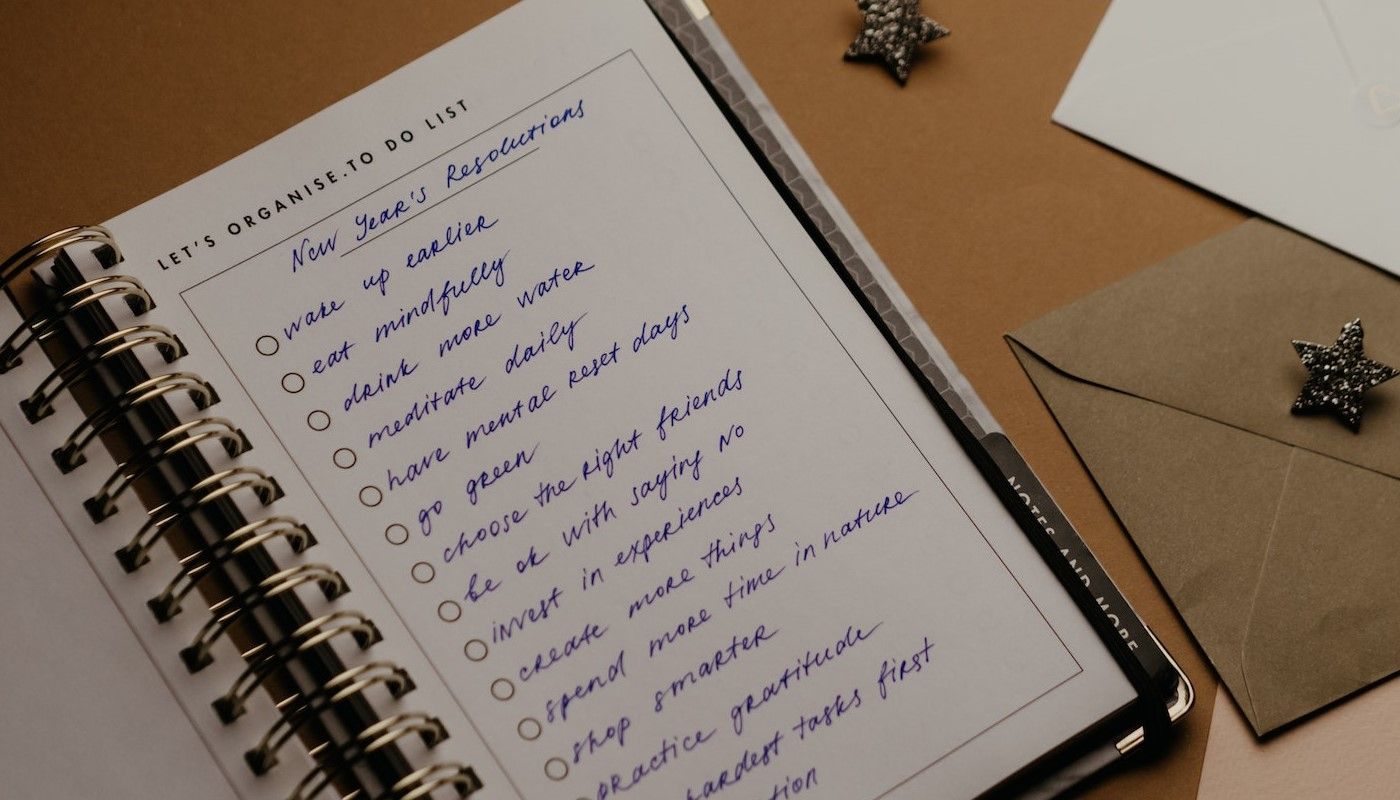 LET'S ORGANISE.TO DO LIST
New Year's Resolutions
wake up earlier
eat mindfully
drink more water
meditate daily
have mental reset days
go green
choose the right friends
be ok with saying no
invest in experiences
create more things
spend more time in nature
shop smarter
practice gratitude
hardest tasks first
NOTES AND MORE